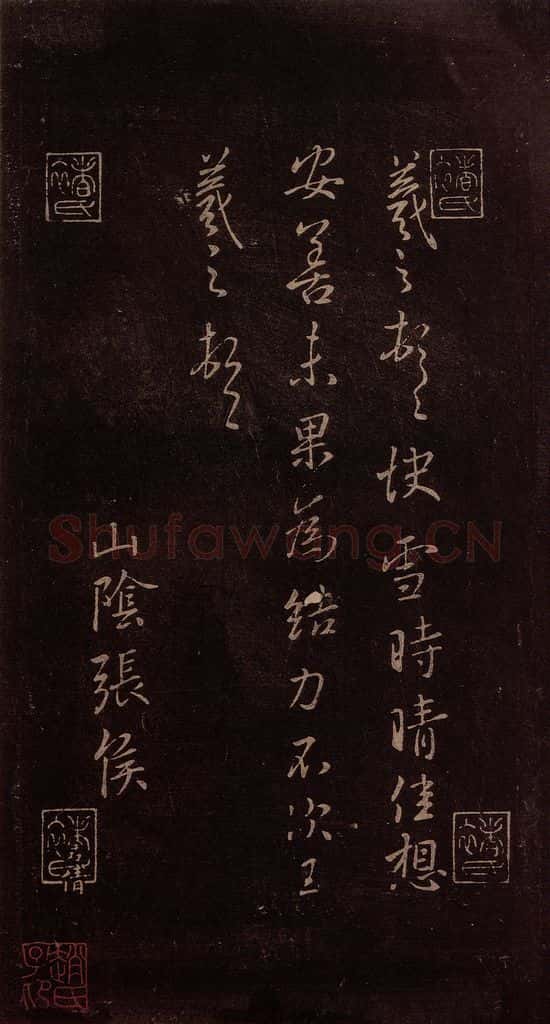 羲之頓首快雪時晴佳想
安善未果為結力不次王
羲之頓首
山陰張侯
褚氏
褚氏
褚氏
褚氏
Shufawang.CN